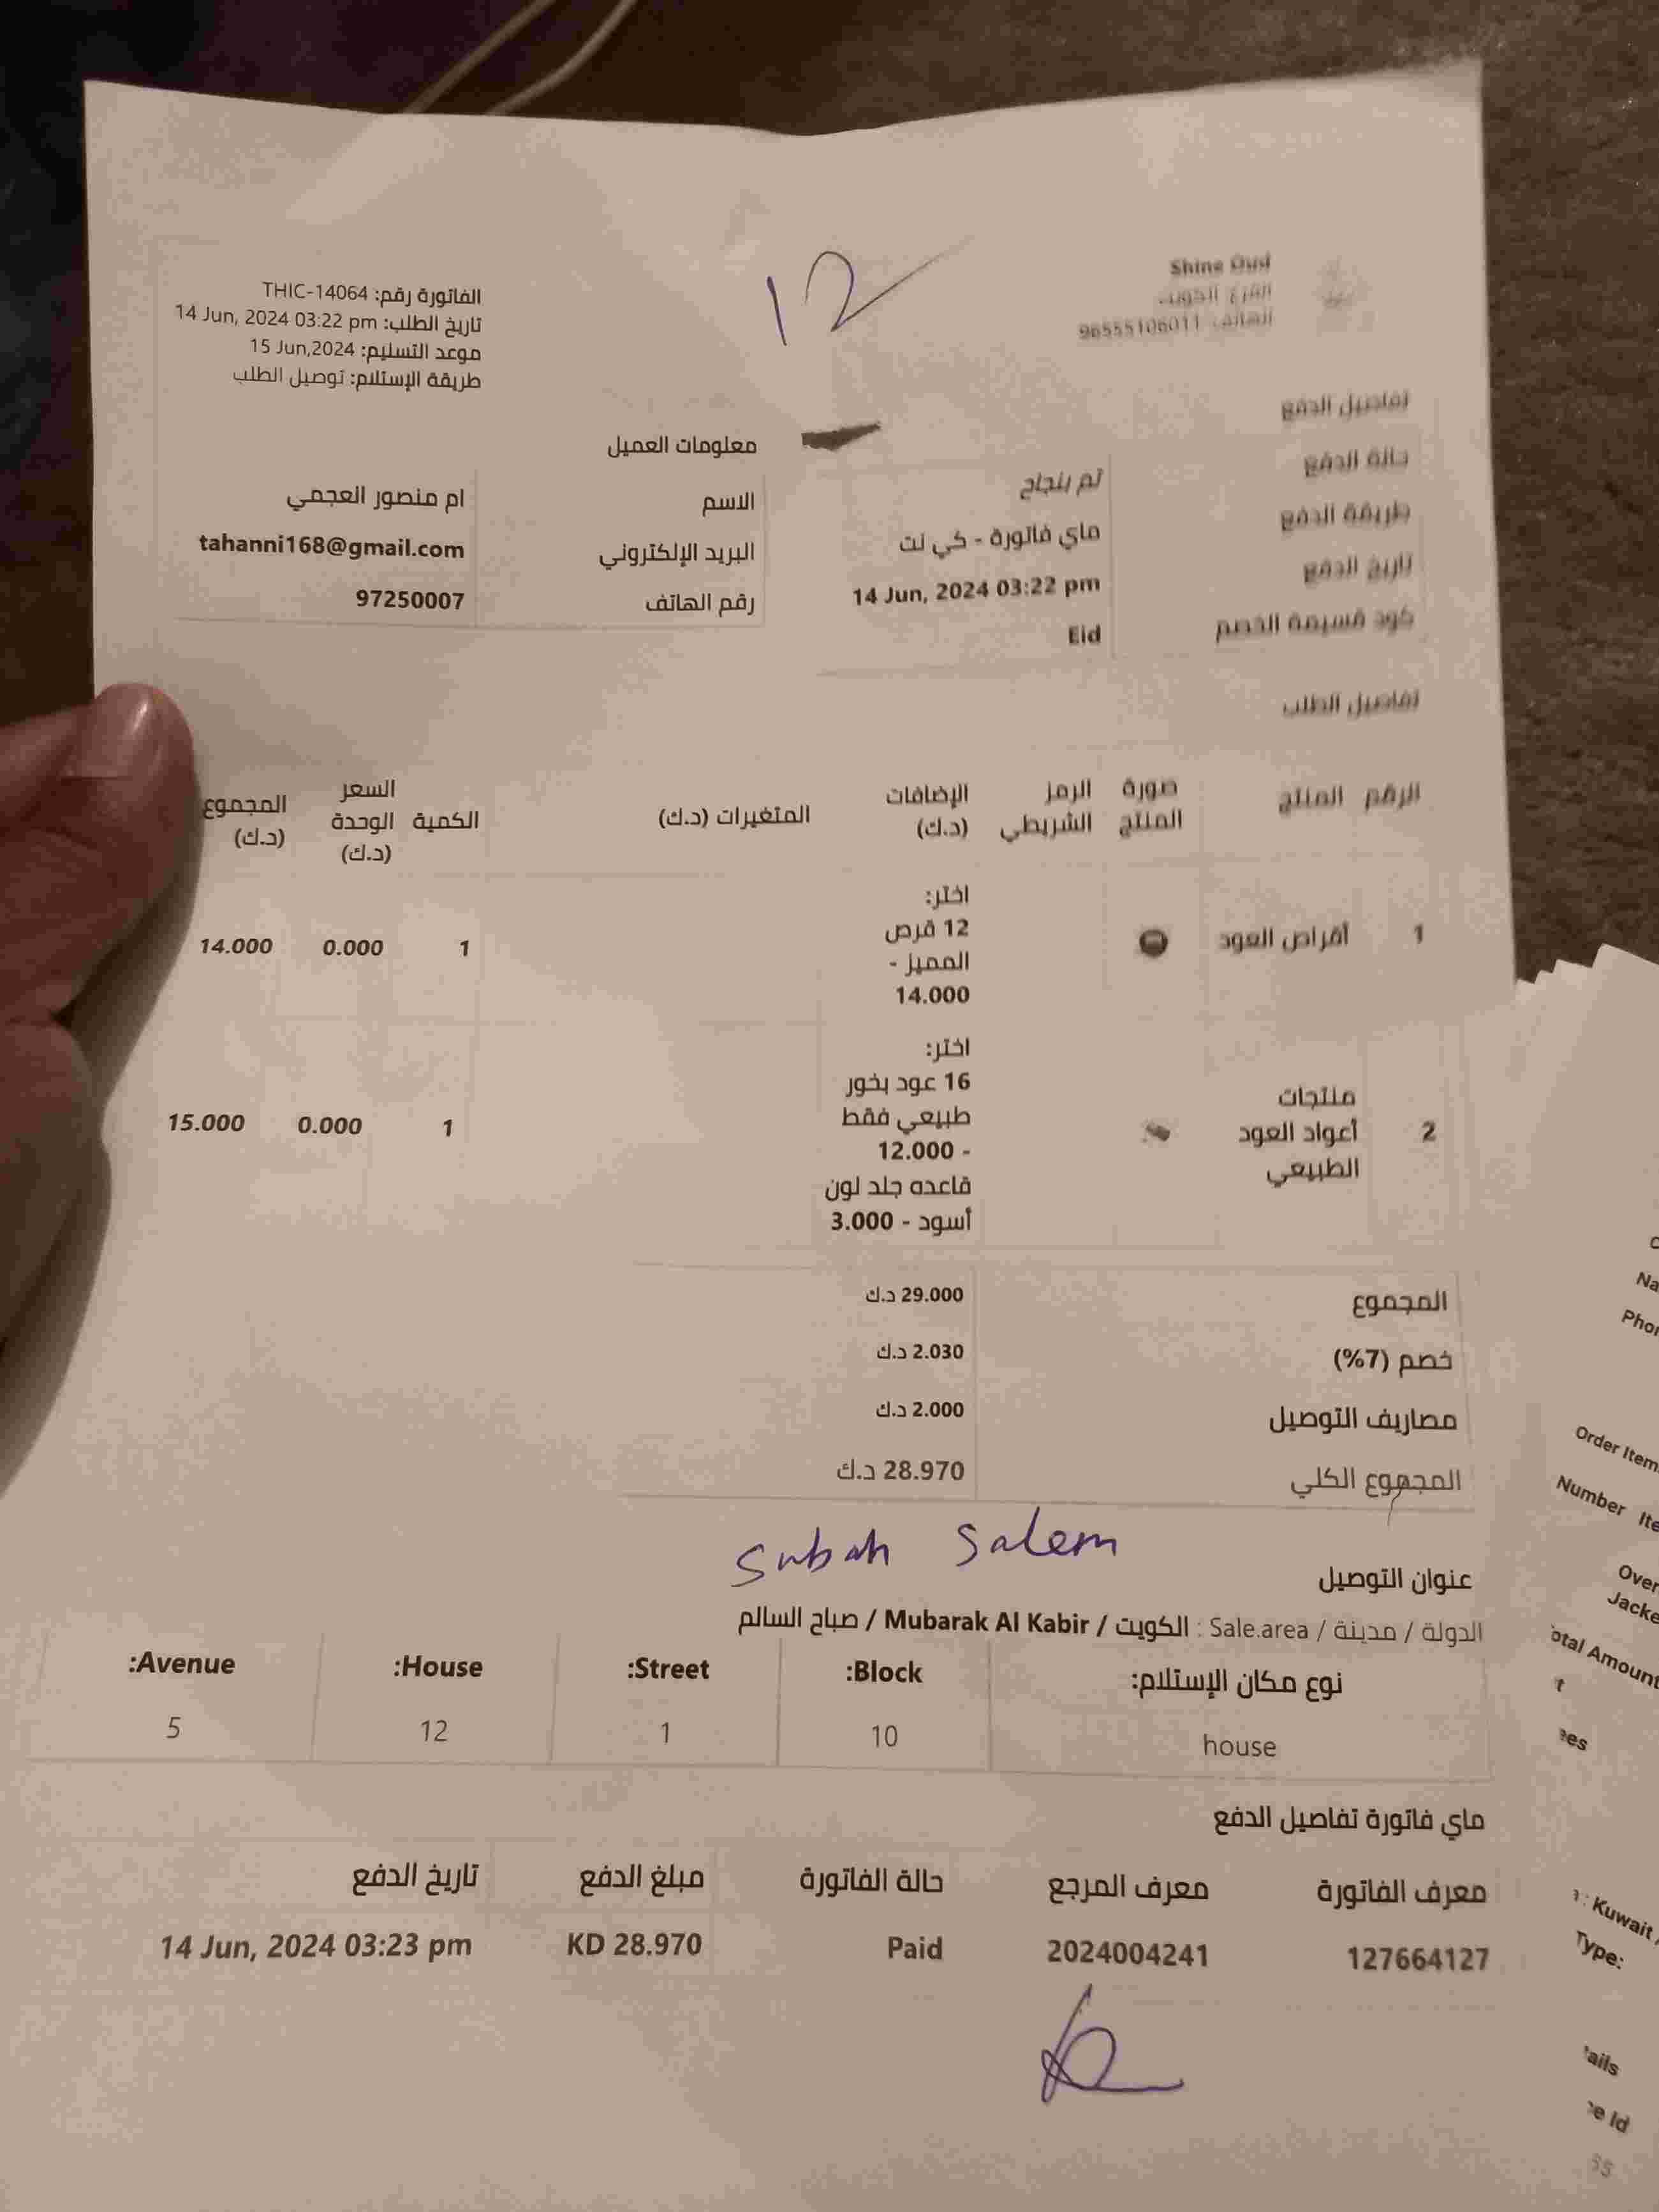 Shine Oud
الفرع: الكويت
الهاتف: 96555106011
12
الفاتورة رقم: THIC-14064
تاريخ الطلب: 14 Jun, 2024 03:22 pm
موعد التسليم: 15 Jun,2024
طريقة الإستلام: توصيل الطلب
تفاصيل الدفع
حالة الدفع تم بنجاح
طريقة الدفع ماي فاتورة - كي نت
تاريخ الدفع 14 Jun, 2024 03:22 pm
كود قسيمة الخصم Eid
معلومات العميل
الاسم ام منصور العجمي
البريد الإلكتروني tahanni168@gmail.com
رقم الهاتف 97250007
تفاصيل الطلب
الرقم المنتج صورة المنتج الرمز الشريطي الإضافات (د.ك) المتغيرات (د.ك) الكمية السعر الوحدة (د.ك) المجموع (د.ك)
1 أقراص العود
اختر:
12 قرص
المميز -
14.000
1 0.000 14.000
2 منتجات
أعواد العود
الطبيعي
اختر:
16 عود بخور
طبيعي فقط
- 12.000
قاعده جلد لون
أسود - 3.000
1 0.000 15.000
المجموع 29.000 د.ك
خصم (7%) 2.030 د.ك
مصاريف التوصيل 2.000 د.ك
المجموع الكلي 28.970 د.ك
Subah Salem
عنوان التوصيل
الدولة / مدينة / Sale.area : الكويت / Mubarak Al Kabir / صباح السالم
نوع مكان الإستلام: Block: Street: House: Avenue:
house 10 1 12 5
ماي فاتورة تفاصيل الدفع
معرف الفاتورة معرف المرجع حالة الفاتورة مبلغ الدفع تاريخ الدفع
127664127 2024004241 Paid KD 28.970 14 Jun, 2024 03:23 pm
Na
Phor
Order Item
Number Ite
Over
Jacke
otal Amount
: Kuwait /
Type:
ails
e Id